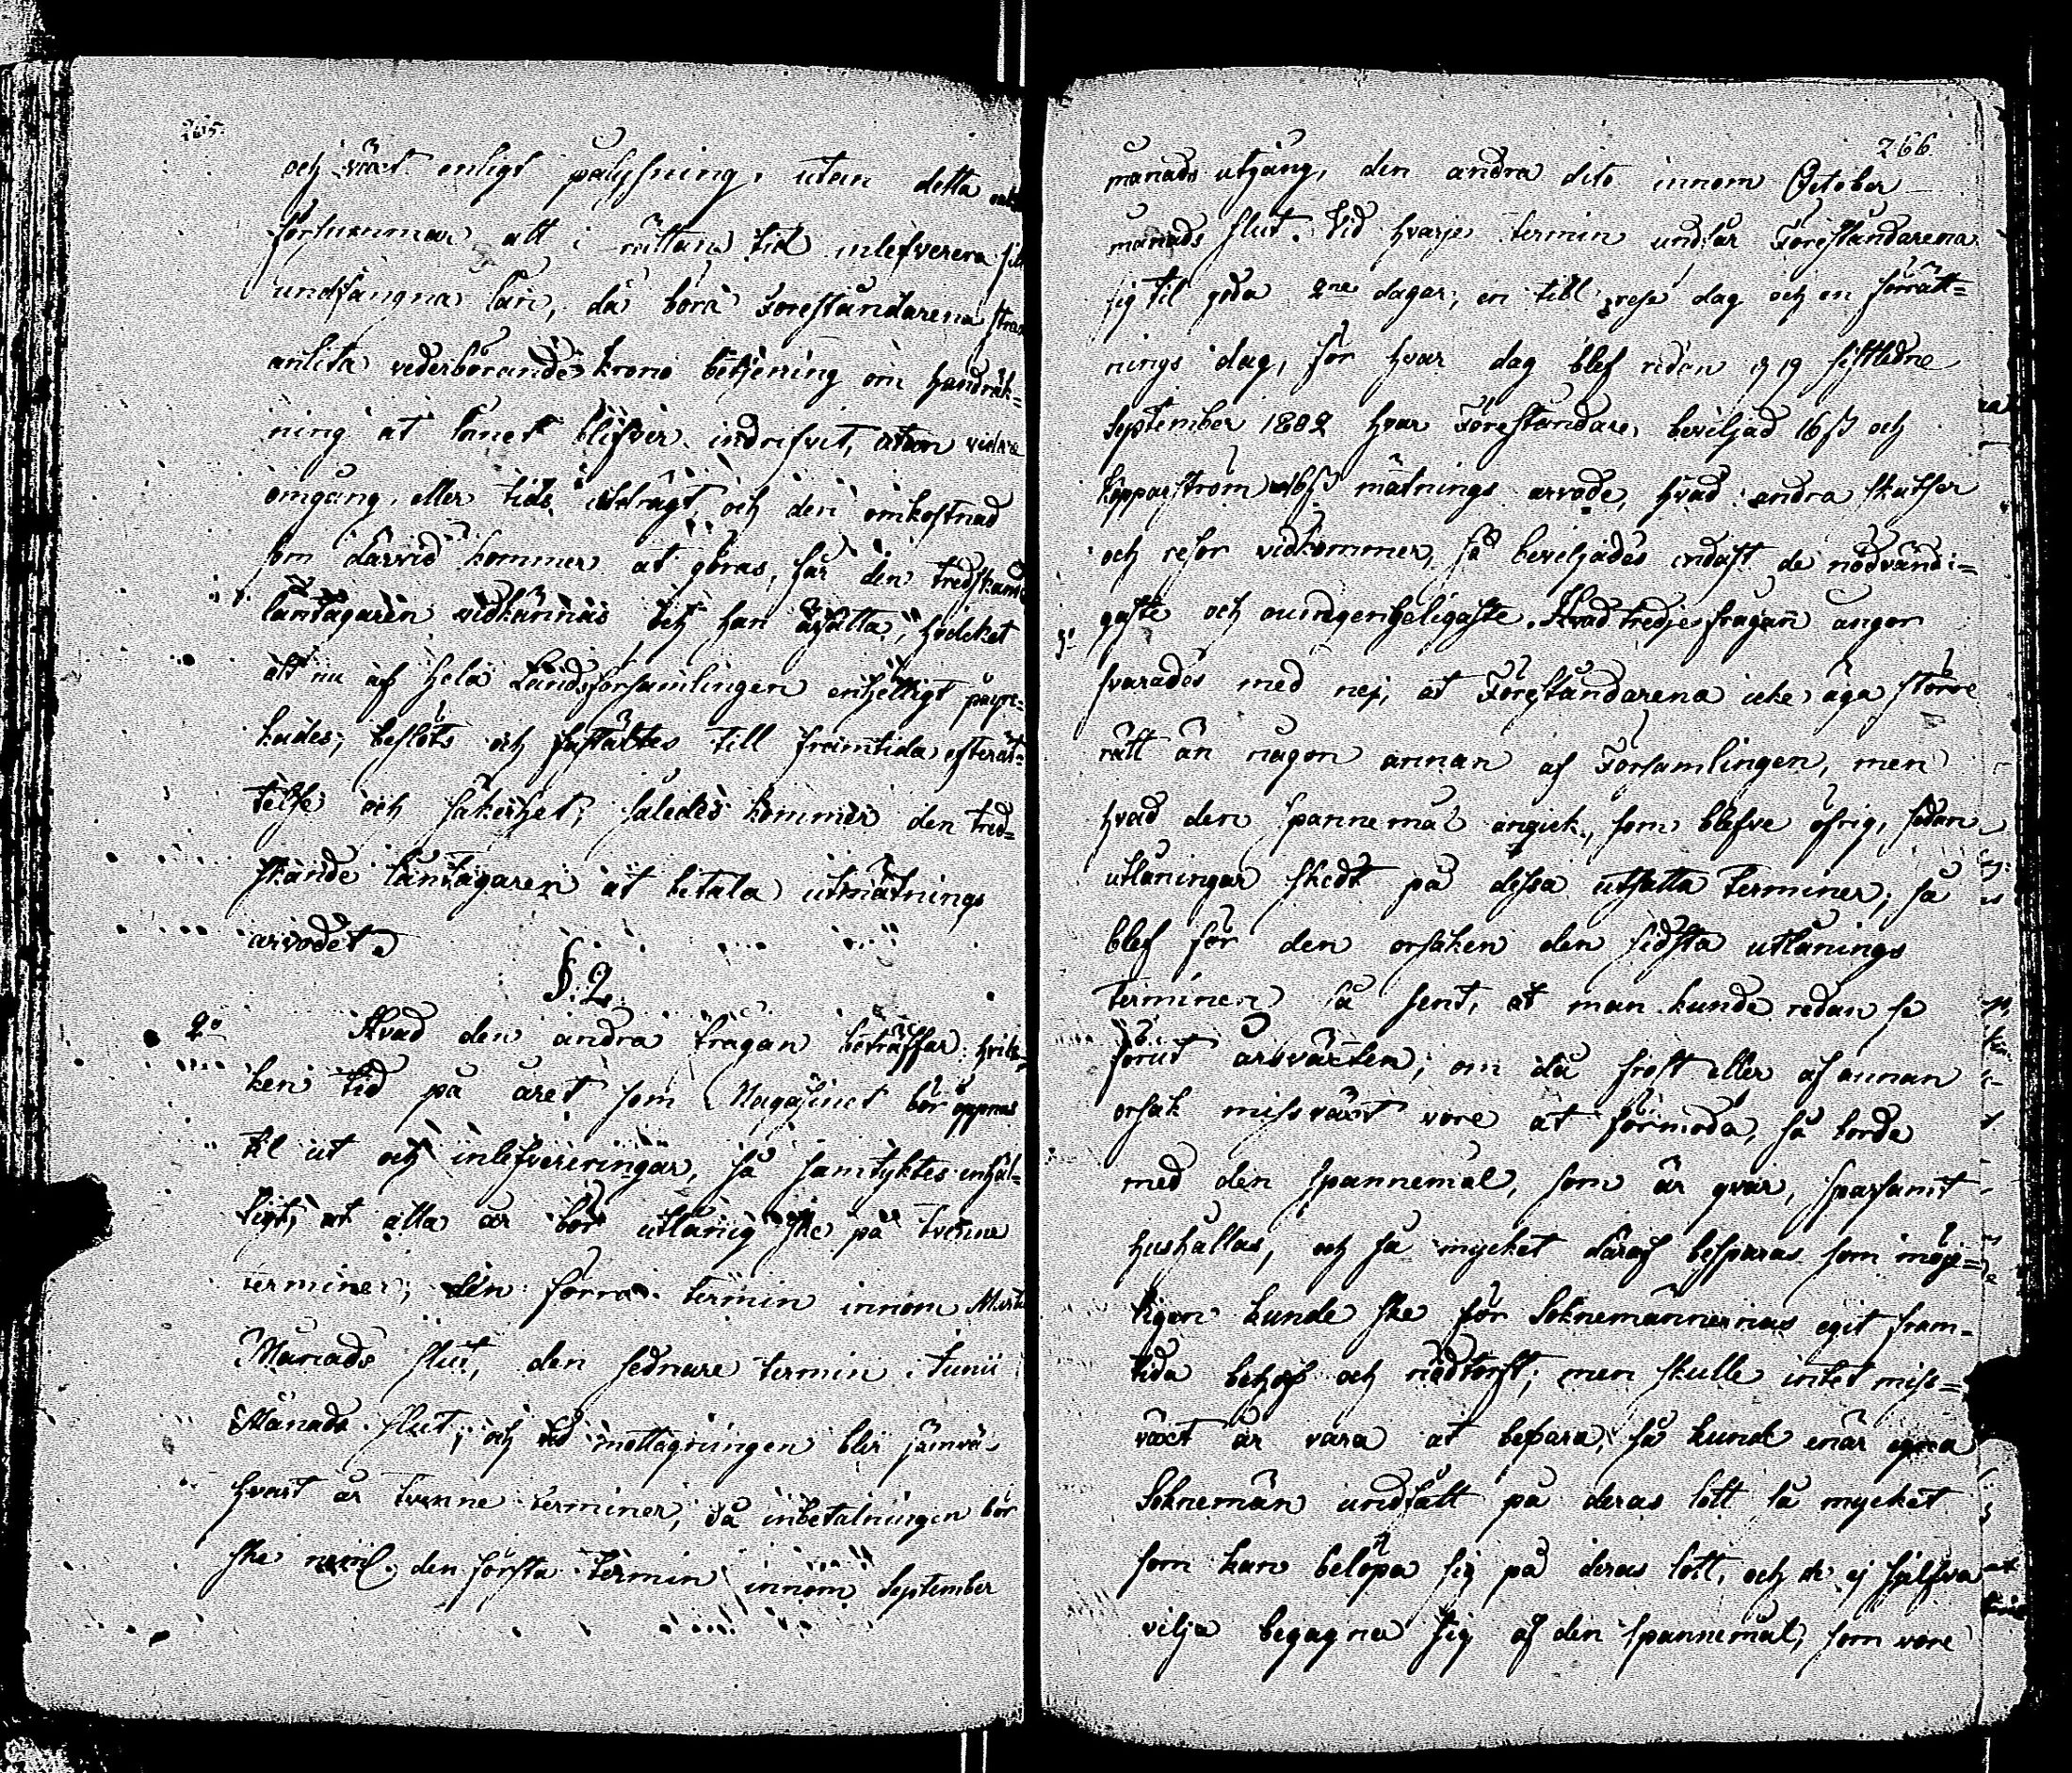 265.
och växt enligt pålysning, utan detta
försummar att i rättan tid inlefverera
undfångna lån, då böra Föreståndarena
anlita vederbörande krono betjening om handräk=
ning at lånet blifver indrifvit, utan vidare
omgång eller tids utdrägt, och den omkostnad
som därvid kommer at göras, får den tredskande
låntagaren vidkännas och han ärsätta, hvilcket
alt nu af hela Landsförsamlingen enhelligt påyr=
kades, beslöts och fastsältes till framtida efterät=
telse och säkerhet; således kommer den tred=
skande låntagaren at betala utmätnings
arvodet.
§. 2.
2o Hvad den andra frågan beträffar: hvilc=
ken tid på året som Magasinet bör öppnas
til ut och inlefvereringar, så samtyktes enhäl=
ligt, at alla år bör utlåning ske på tvenne
terminer; den förra termin innom Martii
Månads slut, den sednare termin i Junii
Månads slut; och vid mottagningen blir jämväl
hvart år tvenne terminer, då inbetalningen bör
ske neml. den första termin innom September
266
månads utgång, den andra dito innom October
månads slut. Vid hvarje termin undfår Föreståndarena
sig til goda 2ne dagar, en till rese dag och en förrätt=
nings dag, för hvar dag blef redan d 19 sistledne
September 1802 hvar Föreståndare beviljad 16 ß och
Kopparström 16 ß mätnings arvode, hvad andra skutser
och resor vidkommer, så beviljades endast de nödvändi=
gaste och oumgengeligaste. Hvad tredje frågan angår
3o
svarades med nej, at Föreståndarena icke äga större
rätt än någon annan af Församlingen, men
hvad den spannemål angick, som blefve öfrig, sedan
utlåningar skedt på dessa utsatta terminer, så
blef för den orsaken den sidsta utlånings
terminen så sent, at man kunde redan se
förut årsväxten; om då frost eller af annan
orsak missväxt vore at förmoda, så borde
med den spannemål, som är qvar, sparsamt
hushållas, och så mycket däraf besparas som möje=
ligen kunde ske för Soknemännernas egit fram=
tida behof och nödtorft; men skulle intet miss=
växt år vara at befara, så kunde enär egna
Soknemän undfått på deras lott så mycket
som kan belöpa sig på deras lott, och de ej sjelfva
vilja begagna sig af den spannemål, som vore